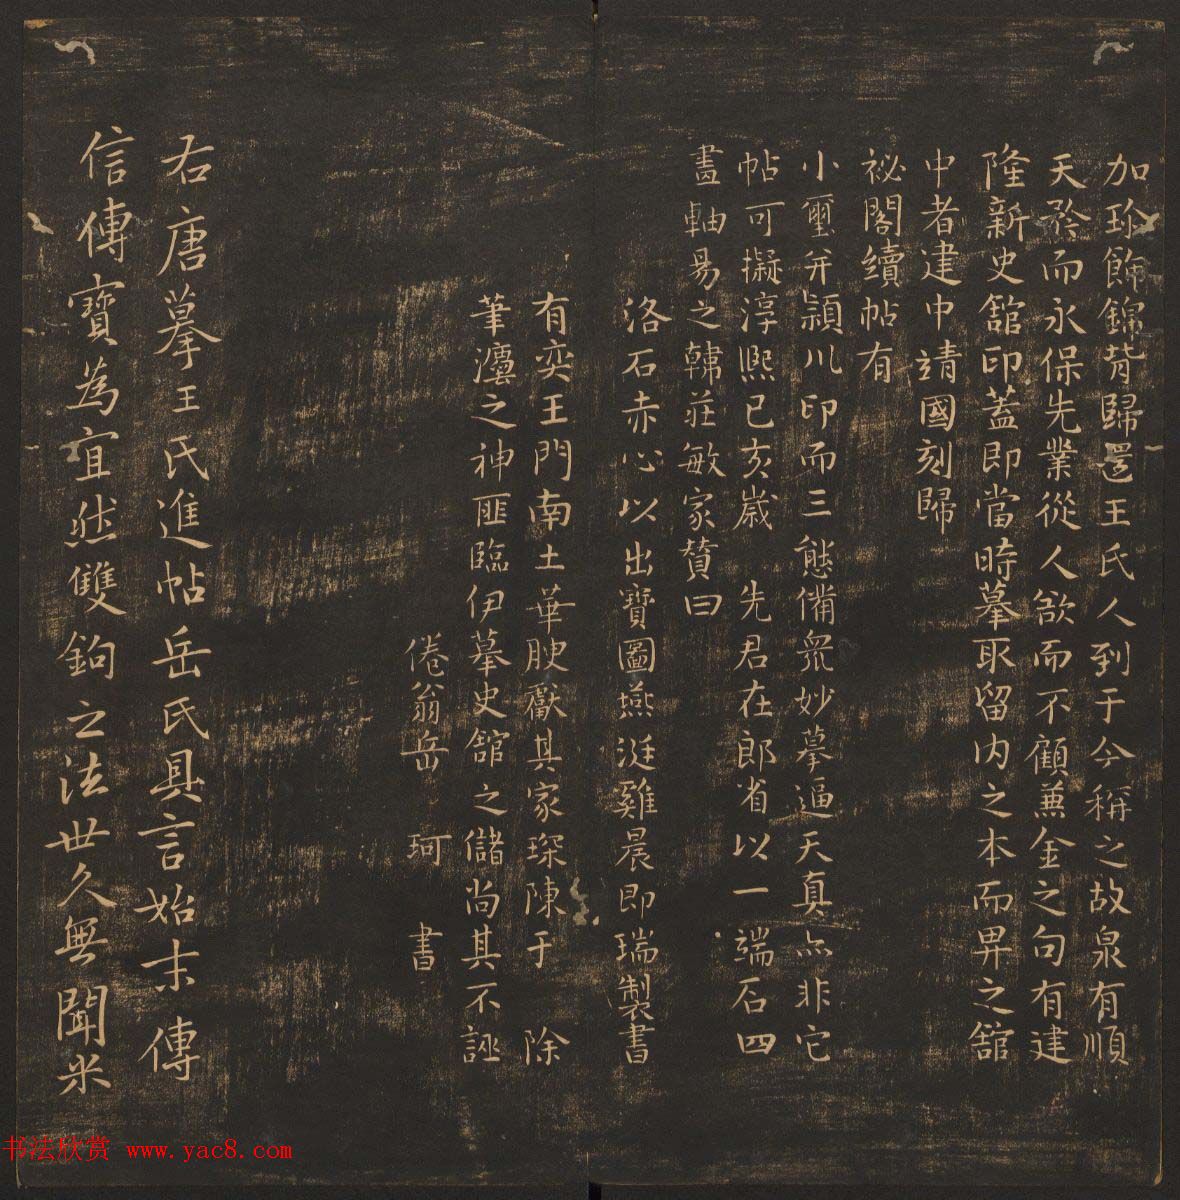 加珍飾錦背歸還王氏人到于今稱之故泉有順
天矜而永保先業從人欲而不顧兼金之句有建
隆新史舘印蓋即當時摹取留内之本而畀之舘
中者建中靖國刻歸
祕閣續帖有
小璽并潁川印而三態備衆妙摹逼天真亦非它
帖可擬淳熙已亥歲 先君在郎省以一端石四
畫軸易之韓莊敏家贊曰
洛石赤心以出寶圖燕涎雞晨即瑞製書
有奕王門南土華腴獻其家琛陳于 除
筆瀽之神匪臨伊摹史舘之儲尚其不誣
倦翁岳 珂 書
右唐摹王氏進帖岳氏具言始末傳
信傳寶為宜然雙鉤之法世久無聞米
书法欣赏 www.yac8.com